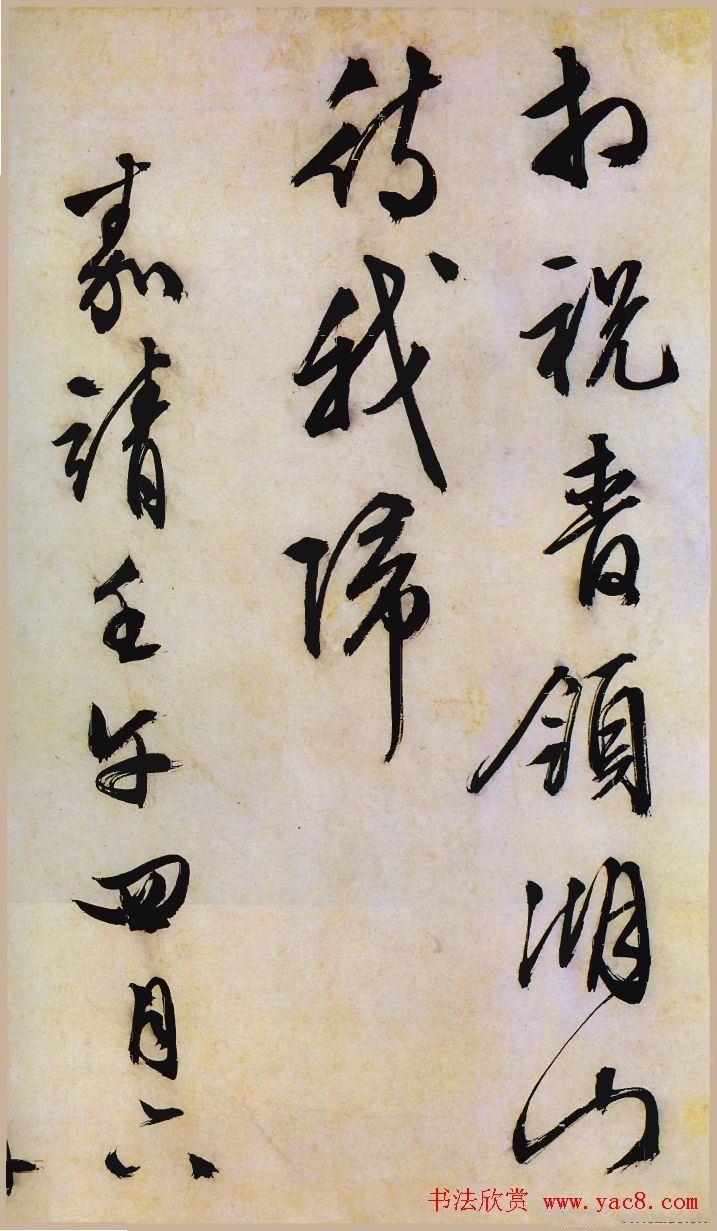 相祝領湖山
待我歸
嘉靖壬午四月六
书法欣赏 www.yac8.com